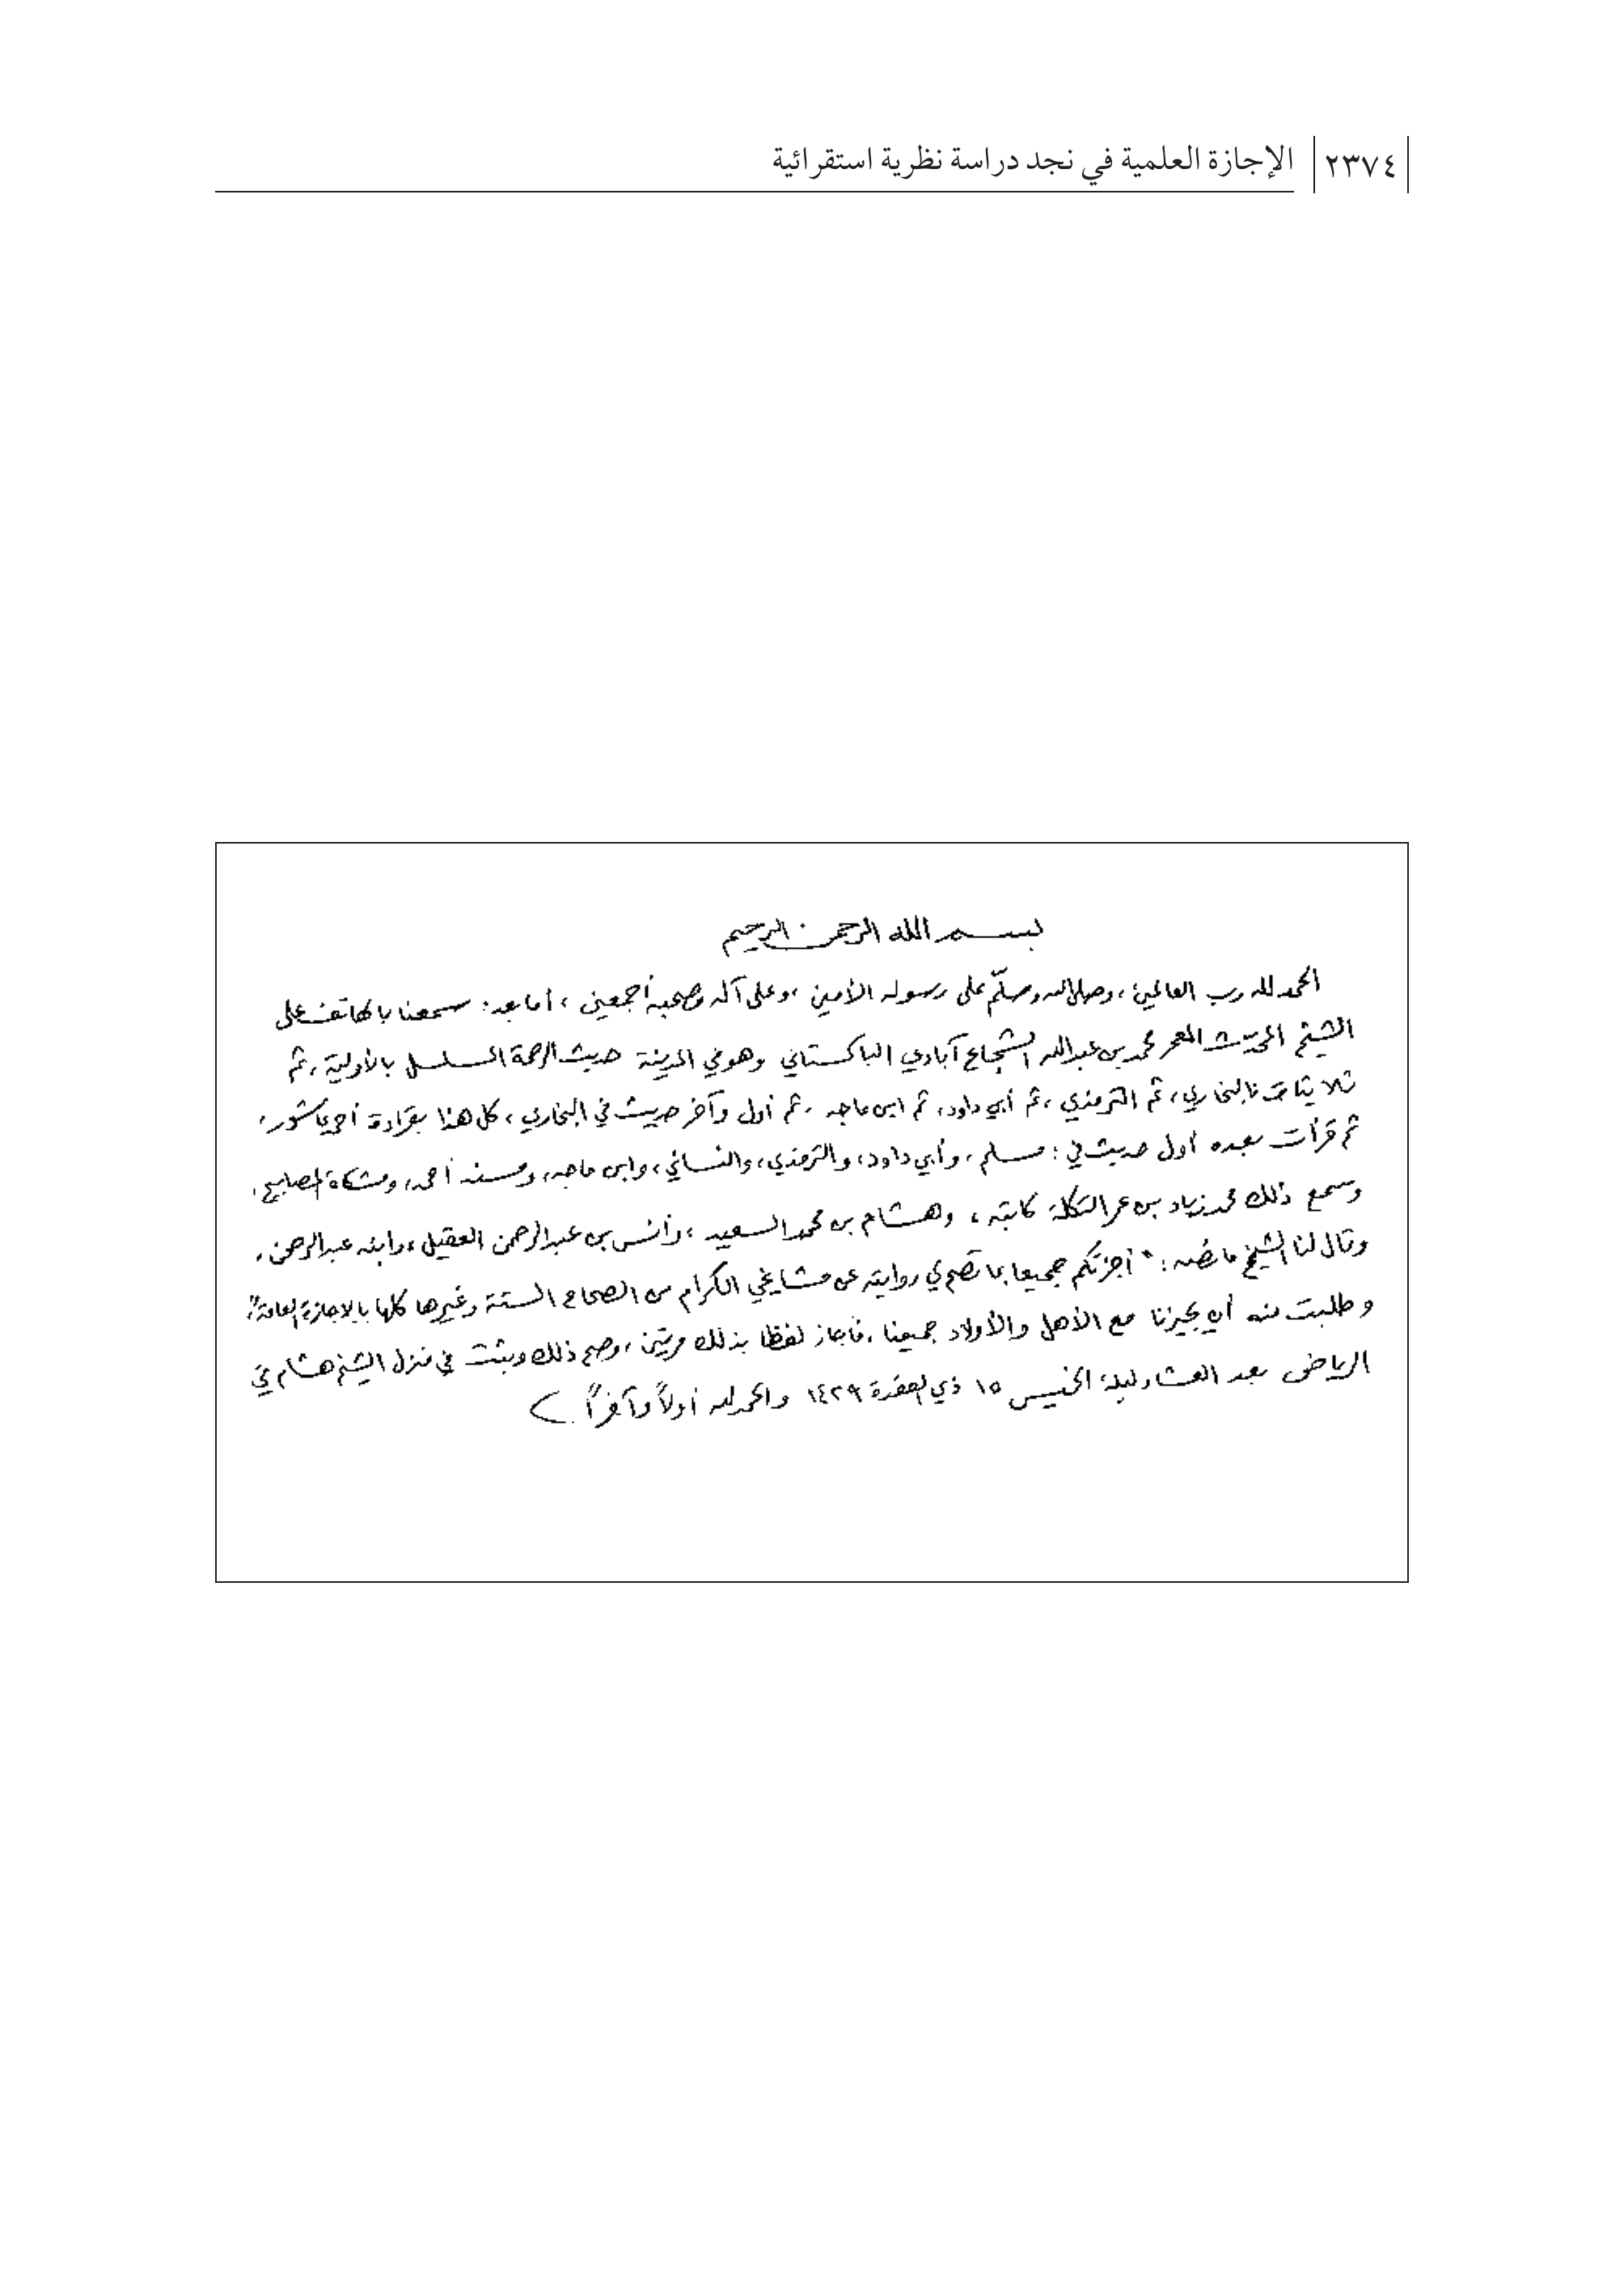 ٢٣٧٤ الإجازة العلمية في نجد دراسة نظرية استقرائية
بسم الله الرحمن الرحيم
الحمد لله رب العالمين، وصلى الله وسلّم على رسوله الأمين، وعلى آله وصحبه أجمعين، أما بعد: سمعنا بالهاتف على
الشيخ المحدّث المعمر محمد بن عبدالله الشجاع آبادي الباكستاني وهو في المدينة حديث الرحمة المسلسل بالأولية، ثم
ثلاثيات البخاري، ثم الترمذي، ثم أبي داود، ثم ابن ماجه، ثم أول وآخر حديث في البخاري، كل هذا بقراءة أحمد عاشور،
ثم قرأت بعده أول حديث في: مسلم، وأبي داود، والترمذي، والنسائي، وابن ماجه، ومسند أحمد، ومشكاة المصابيح،
وسمع ذلك محمد زياد بن عمر التكلة كاتبه، وهشام بن محمد السعيد، وأنس بن عبدالرحمن العقيل، وابنه عبدالرحمن،
وقال لنا الشيخ ما نصُّه: "أجزتكم جميعا بما تصح لي روايته عن مشايخي الكرام من الصحاح الستة وغيرها كلها بالإجازة العامة"،
وطلبت منه أن يجيزنا مع الأهل والأولاد جميعنا، فأجاز لفظا بذلك مرتين، وصح ذلك وثبت في منزل الشيخ هشام في
الرياض بعد العشاء ليلة الخميس ١٥ ذي القعدة ١٤٢٩ والحمد لله أولاً وآخراً